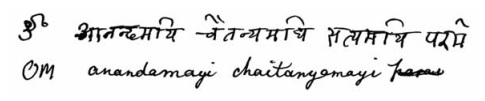 ॐ आनन्दमयि चैतन्यमयि सत्यमयि परमे
OM anandamayi chaitanyamayi